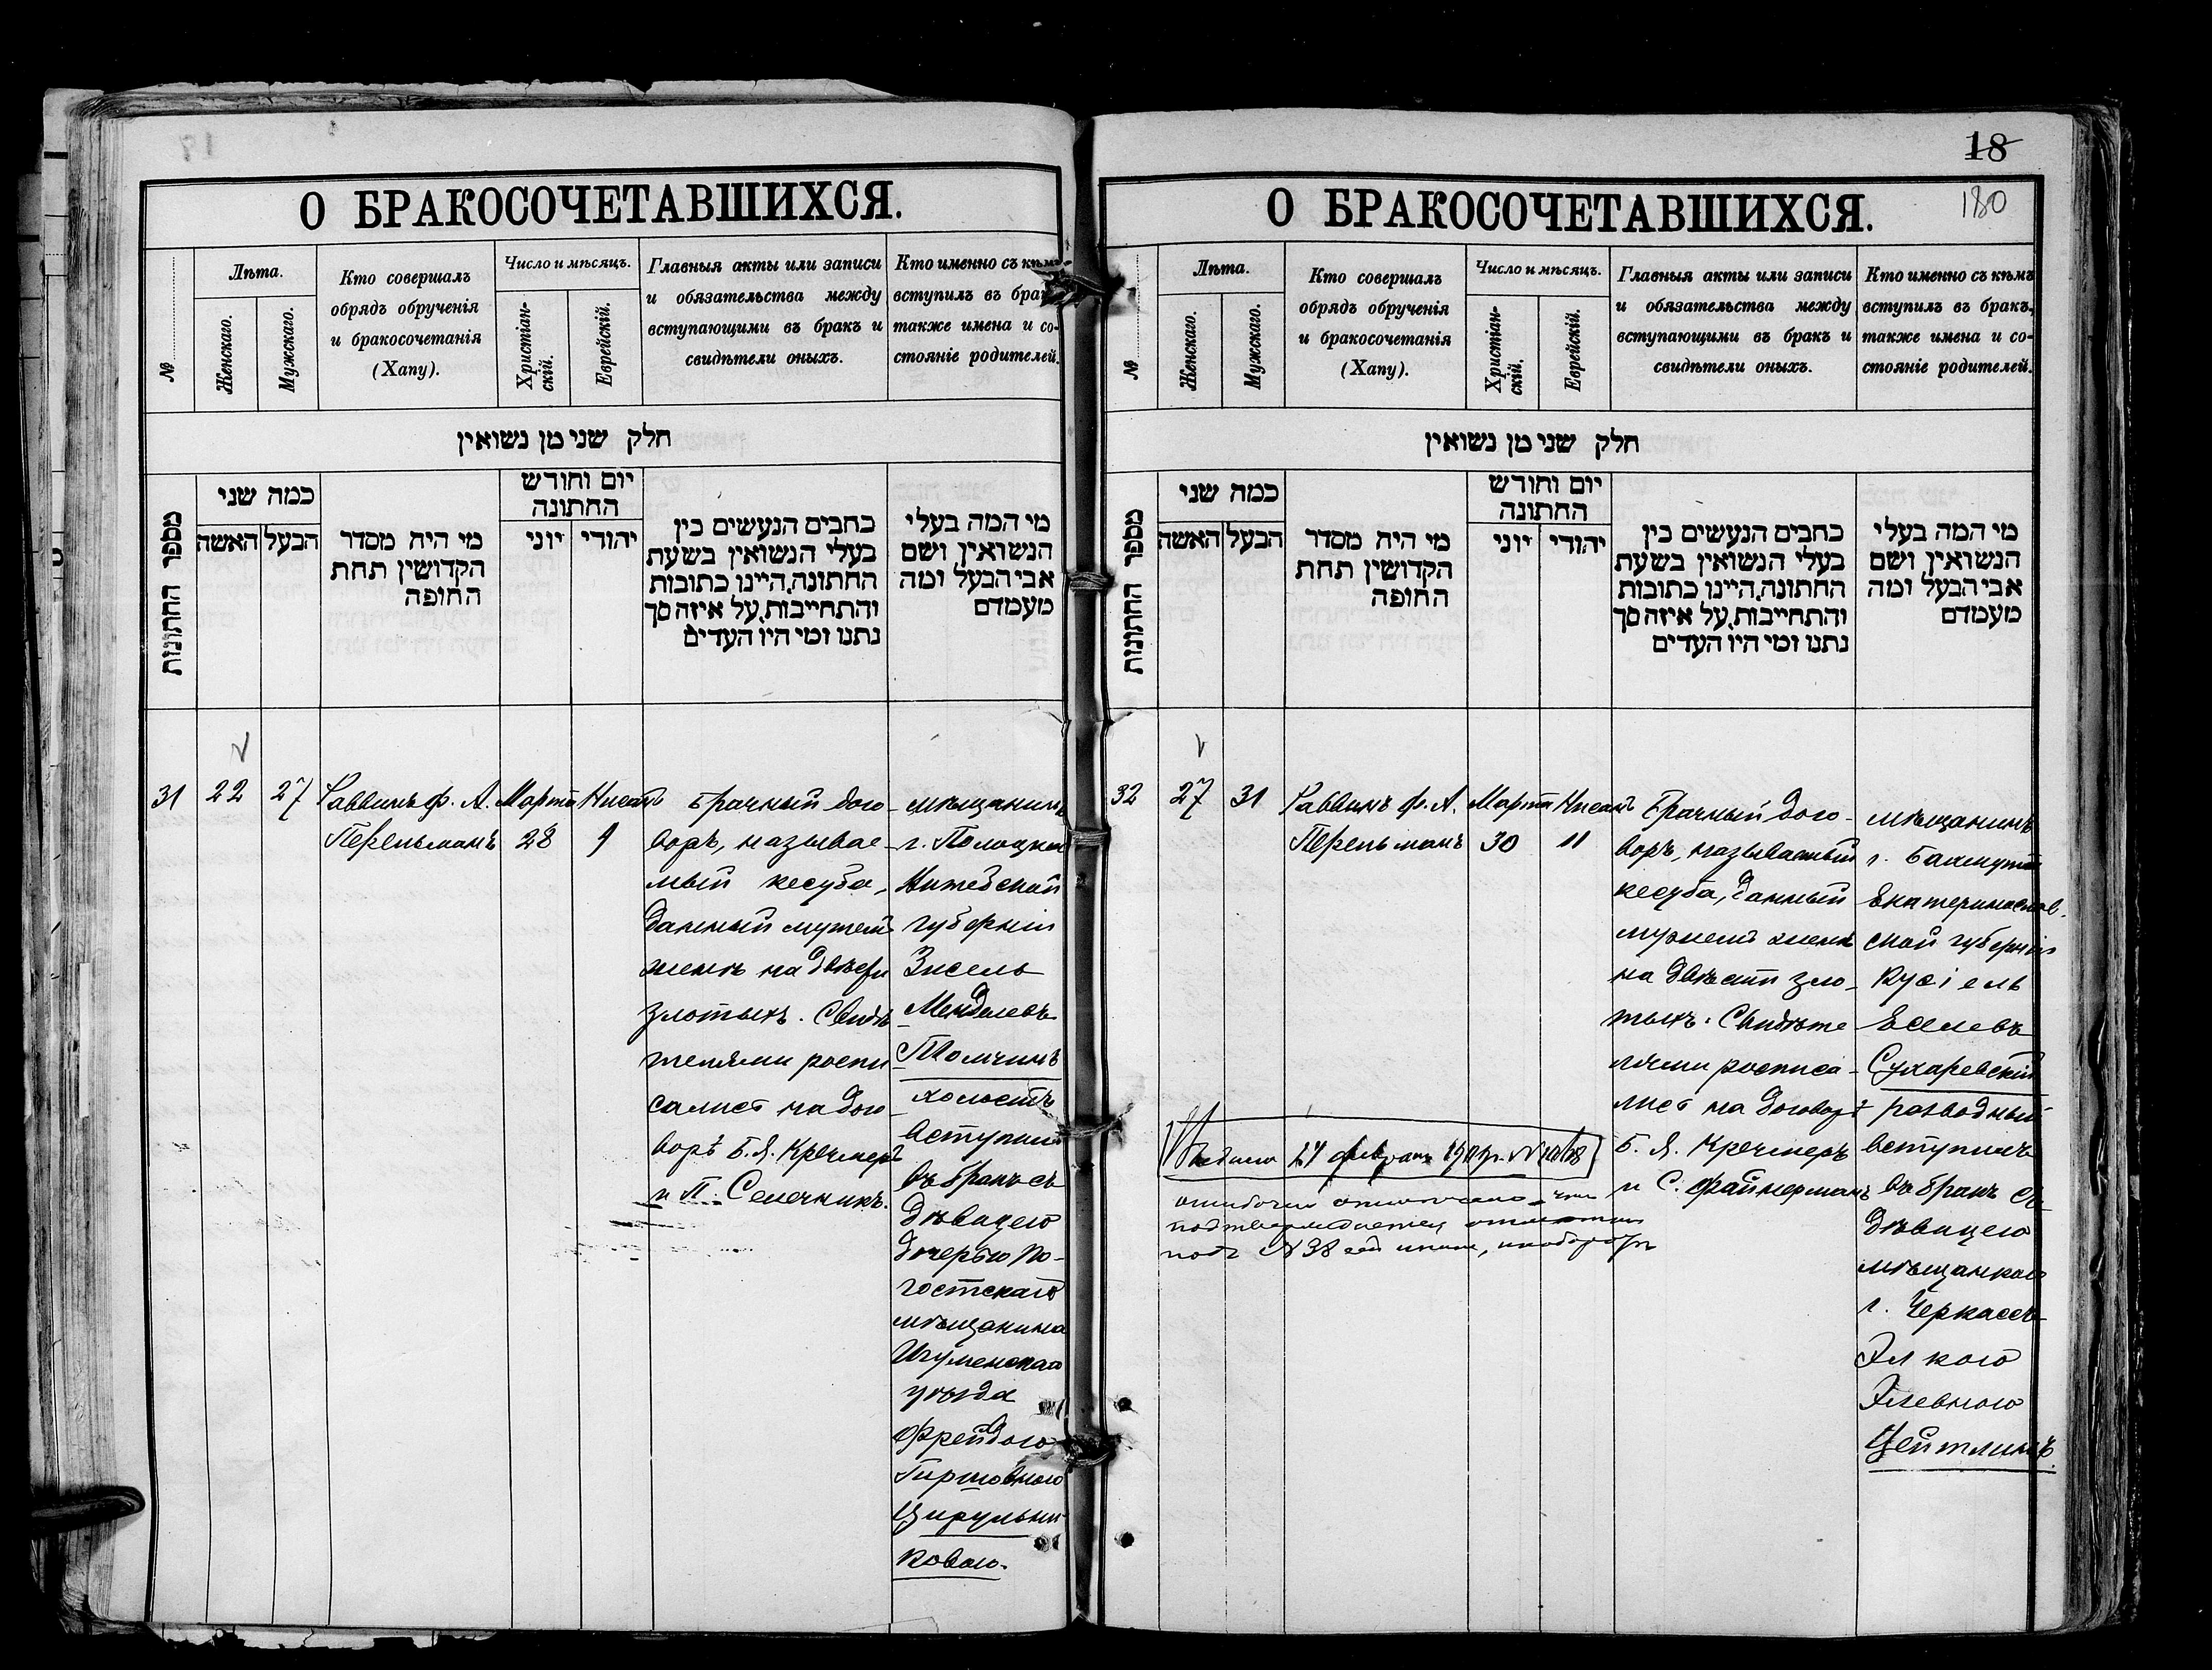 О БРАКОСОЧЕТАВШИХСЯ.
№
Лѣта.
Женскаго.
Мужскаго.
Кто совершалъ
обрядъ обрученія
и бракосочетанія
(Хапу).
Число и мѣсяцъ.
Христіан-
скій.
Еврейскій.
Главныя акты или записи
и обязательства между
вступающими въ бракъ и
свидѣтели оныхъ.
Кто именно съ кѣмъ
вступилъ въ бракъ
также имена и со-
стояніе родителей.
חלק שני מן נשואין
מספר החתונות
כמה שני
האשה
הבעל
מי היה מסדר
הקדושין תחת
החופה
יום וחודש
החתונה
יוני
יהודי
כתבים הנעשים בין
בעלי הנשואין בשעת
החתונה, היינו כתובות
והתחייבות, על איזה סך
נתנו ומי היו העדים
מי המה בעלי
הנשואין ושם
אבי הבעל ומה
מעמדם
31
22
27
Раввинъ Ф. А.
Перельманъ
Марта
28
Нисанъ
9
Брачный дого-
воръ, называе-
мый кесуба,
данный мужемъ
женѣ на двѣсти
злотыхъ. Свидѣ-
телями роспи-
сались на дого-
ворѣ Б. Я. Кречмеръ
и П. Сенечникъ.
мѣщанинъ
г. Полоцка
Витебской
губерніи
Зисель
Менделевъ
Толчинъ
холостъ
вступилъ
въ бракъ съ
дѣвицею
дочерью По-
гостскаго
мѣщанина
Игуменскаго
уѣзда
Фрейдою
Гиршовною
Цирульни-
ковою.
18
180
О БРАКОСОЧЕТАВШИХСЯ.
№
Лѣта.
Женскаго.
Мужскаго.
Кто совершалъ
обрядъ обрученія
и бракосочетанія
(Хапу).
Число и мѣсяцъ.
Христіан-
скій.
Еврейскій.
Главныя акты или записи
и обязательства между
вступающими въ бракъ и
свидѣтели оныхъ.
Кто именно съ кѣмъ
вступилъ въ бракъ,
также имена и со-
стояніе родителей.
חלק שני מן נשואין
מספר החתונות
כמה שני
האשה
הבעל
מי היה מסדר
הקדושין תחת
החופה
יום וחודש
החתונה
יוני
יהודי
כתבים הנעשים בין
בעלי הנשואין בשעת
החתונה, היינו כתובות
והתחייבות, על איזה סך
נתנו ומי היו העדים
מי המה בעלי
הנשואין ושם
אבי הבעל ומה
מעמדם
32
27
31
Раввинъ Ф. А.
Перельманъ
Марта
30
Нисанъ
11
Брачный дого-
воръ, называемый
кесуба, данный
мужемъ женѣ
на двѣсти зло-
тыхъ. Свидѣте-
лями росписа-
лись на договорѣ
Б. Я. Кречмеръ
и С. Файнерманъ
мѣщанинъ
г. Бахмута
Екатеринослав-
ской губерніи
Кусіель
Еселевъ
Сухаревскій
разводный
вступилъ
въ бракъ съ
дѣвицею
мѣщанкою
г. Черкассъ
Элькою
Элевною
Цейтлинъ.
февраля
ошибочно отмѣчено, что
подтверждается
подъ № 38